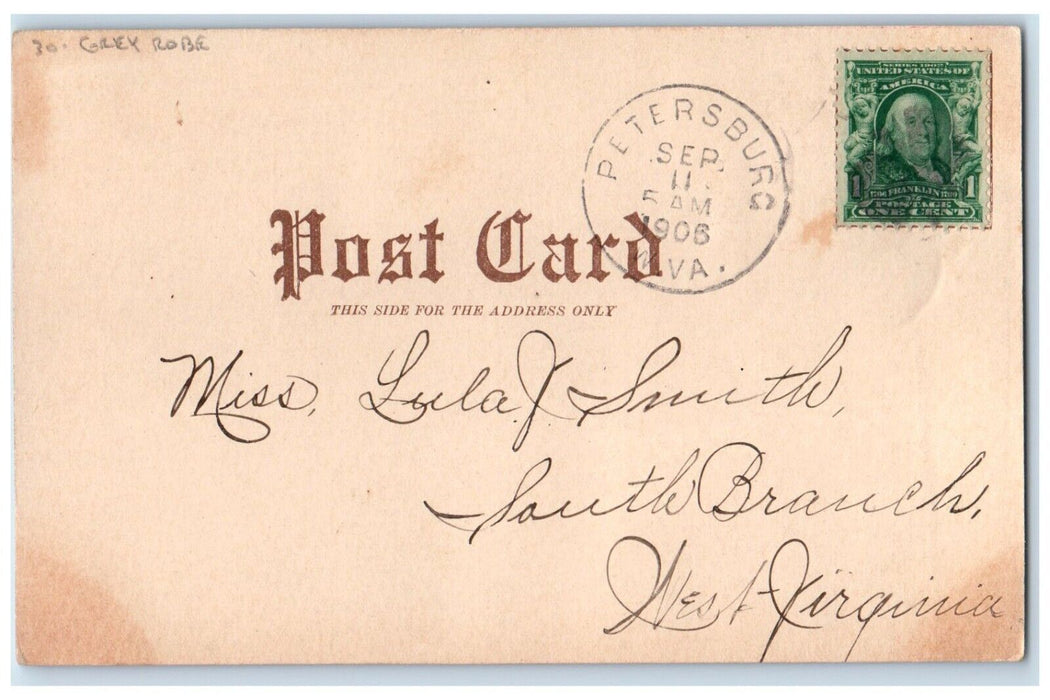 30. GREY ROBE
SERIES 1902
UNITED STATES OF
AMERICA
1 1
1706 FRANKLIN 1790
POSTAGE
ONE CENT
PETERSBURG
SEP
11
5 AM
1906
W. VA.
Post Card
THIS SIDE FOR THE ADDRESS ONLY
Miss. Lula J Smith,
South Branch,
West-Virginia